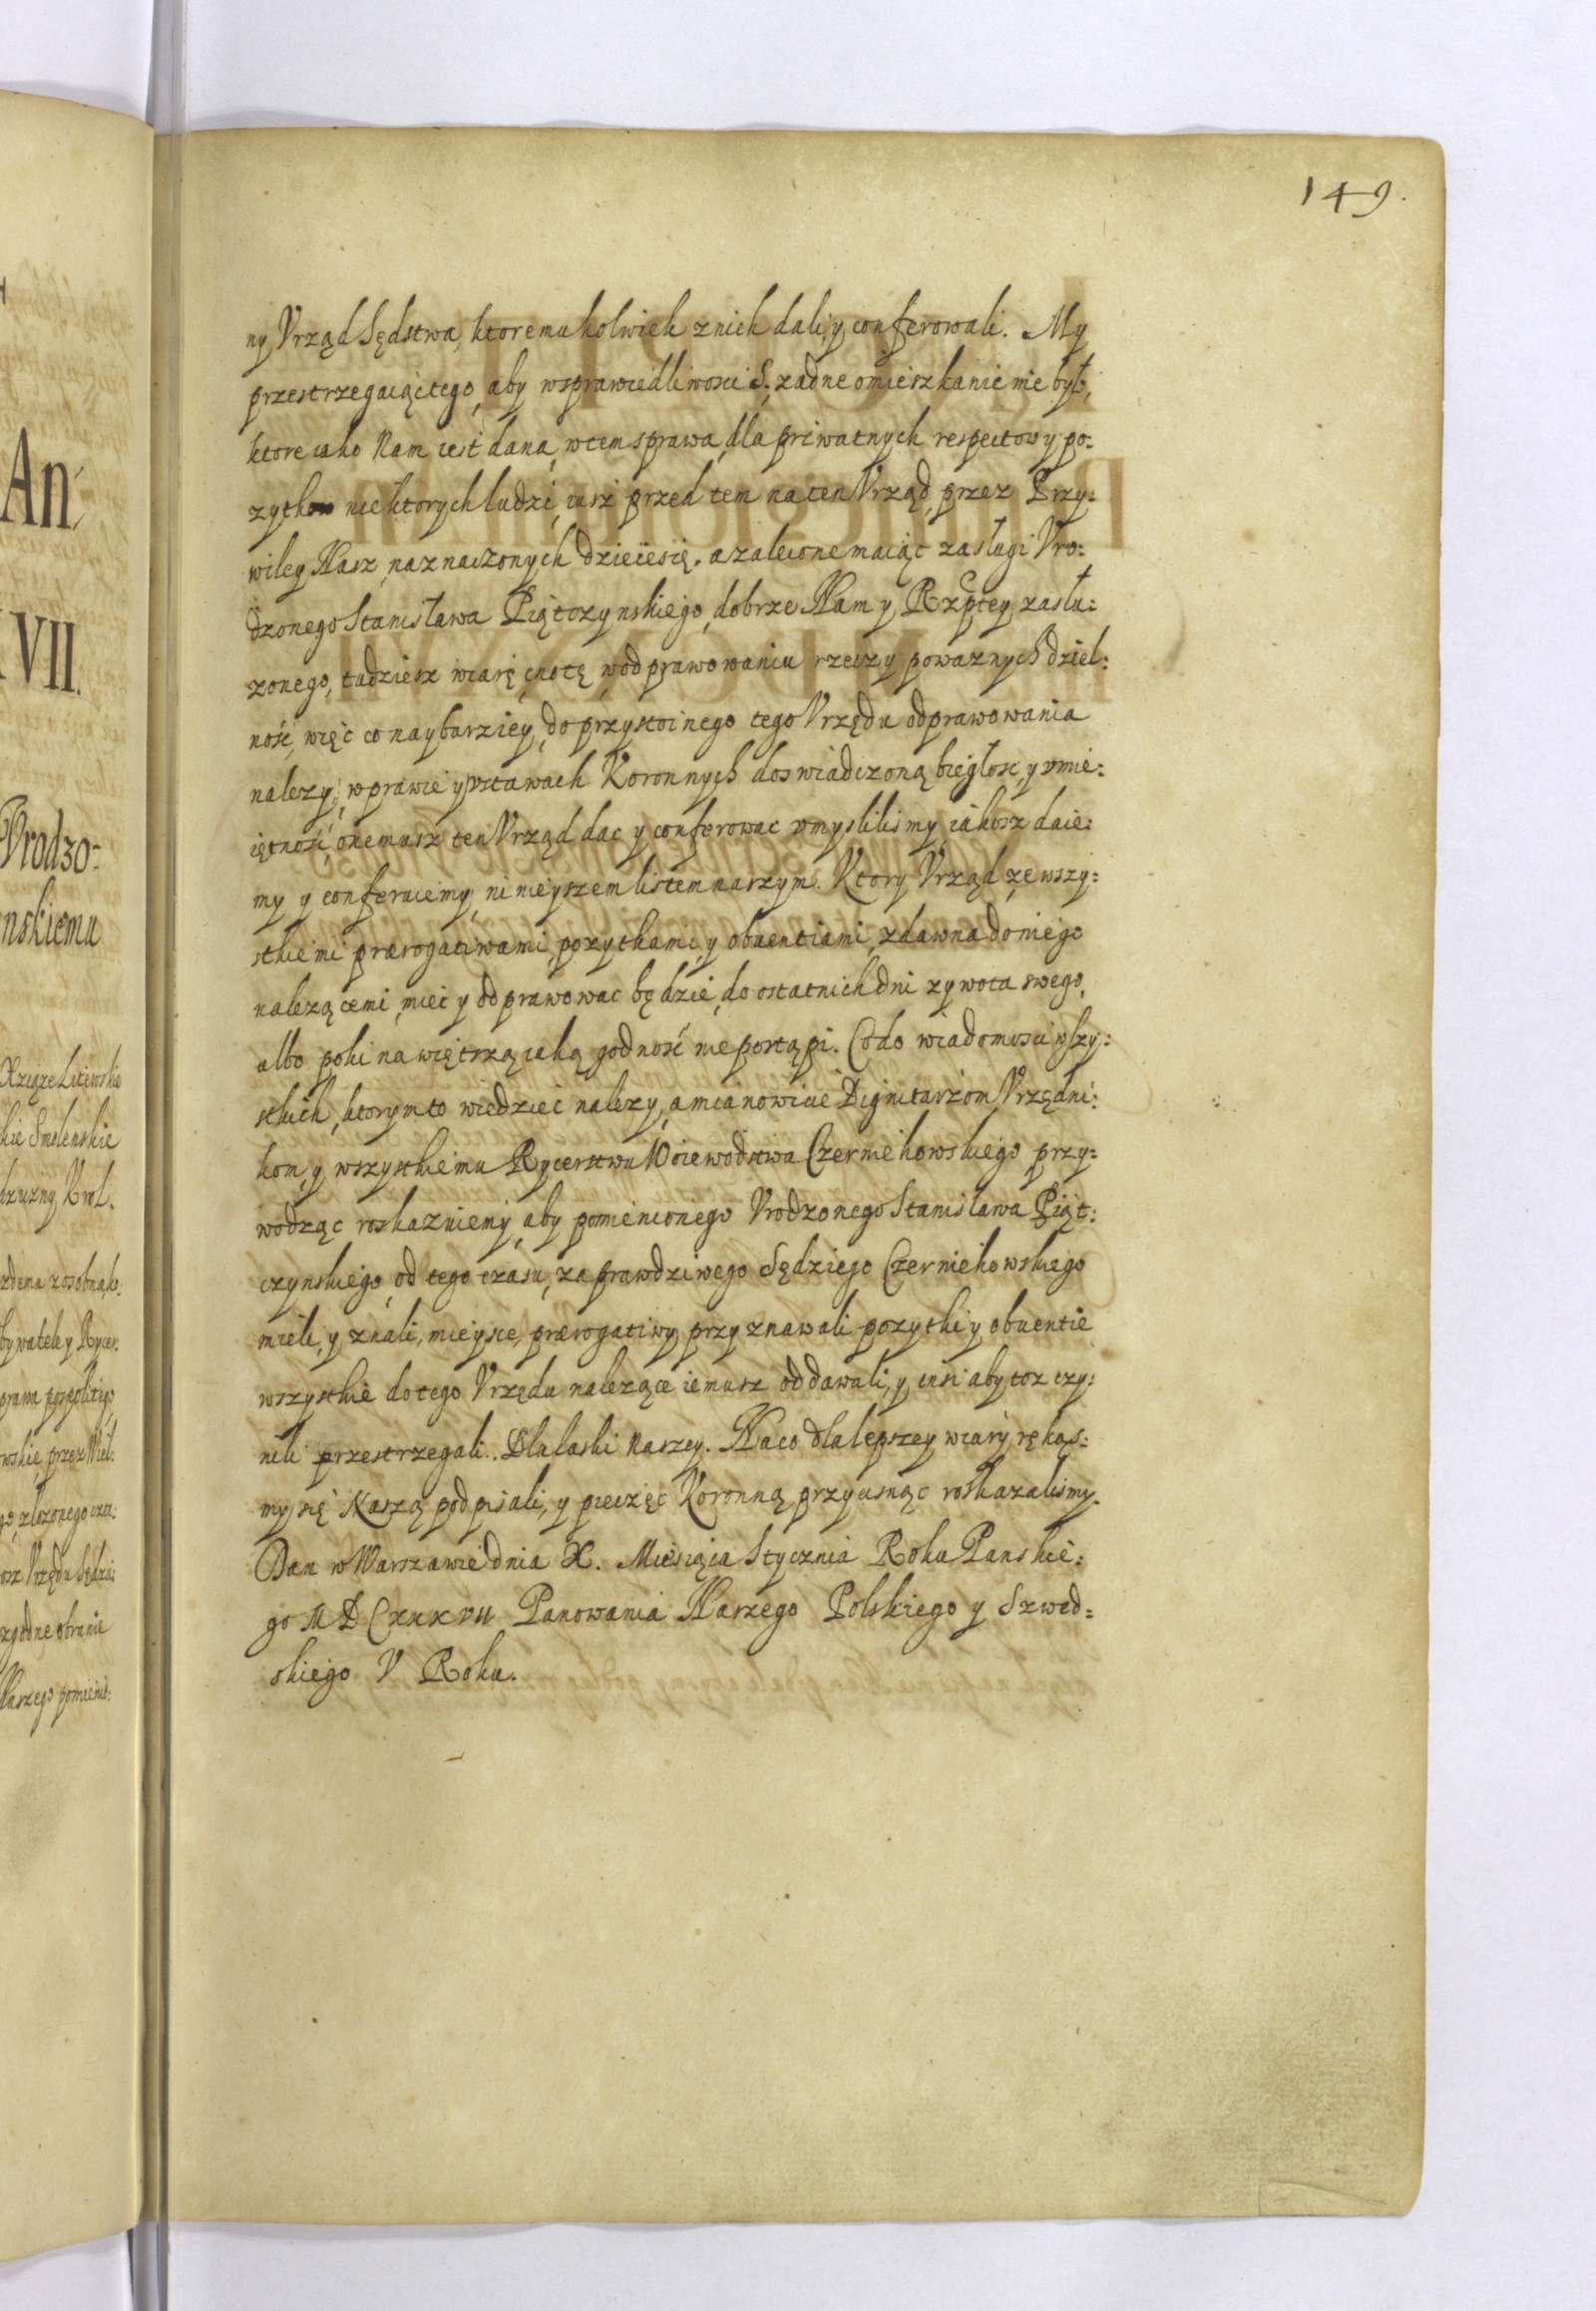 149.
ny Vrząd Sędstwa, ktoremukolwiek z nich dali, y conferowali. My
przestrzegaiąc tego, aby w sprawiedliwosci S. zadne omieszkanie nie było,
ktore iako Nam iest dana, w tem sprawa, dla priwatnych respectow y po:
zytkow niektorych ludzi, iusz przed tem na ten Vrząd, przez Przy:
wiley Nasz naznaczonych dzieie się. a zalecone maiąc zasługi Vro:
dzonego Stanisława Piątczynskiego, dobrze Nam y Rzptey zasłu:
zonego, tudziesz wiarę cnotę, w odprawowaniu rzeczy powaznych dziel:
ność, więc co naybarziey, do przystoinego tego Vrzędu odprawowania
nalezy, w prawie y vstawach Koronnych doswiadczoną biegłosc, y vmie:
iętność, onemusz ten Vrząd dac y conferowac vmyslilismy, iakosz daie:
my y conferuiemy, ninieyszem listem naszym. Ktory Vrząd, ze wszy:
stkiemi prærogatiwami, pozytkami, y obuentiami, zdawna do niego
nalezącemi, mieć y odprawowac będzie, do ostatnich dni zywota swego,
albo poki na więtszą iaką godność nie postąpi. Co do wiadomosci wszy:
stkich, ktorym to wiedziec nalezy, a mianowicie Dignitarzom, Vrzędni:
kom, y wszystkiemu Rycerstwu Woiewodstwa Czerniehowskiego przy:
wodząc roskazuiemy, aby pomienionego Vrodzonego Stanisława Piąt:
czynskiego, od tego czasu, za prawdziwego Sędziego Czerniehowskiego
mieli, y znali, mieysce, prærogatiwy przyznawali pozytki y obuentie
wszystkie do tego Vrzędu nalezące iemusz oddawali, y insi aby toz czy:
nili przestrzegali. Dla łaski Naszey. Na co dla lepszey wiary, ręką s:
my się Naszą podpisali, y pieczęc Koronną przycisnąc roskazalismy.
Dan w Warszawie dnia X. Miesiąca Stycznia Roku Panskie:
go MDCXXXVII Panowania Naszego Polskiego y Szwed:
skiego V Roku.